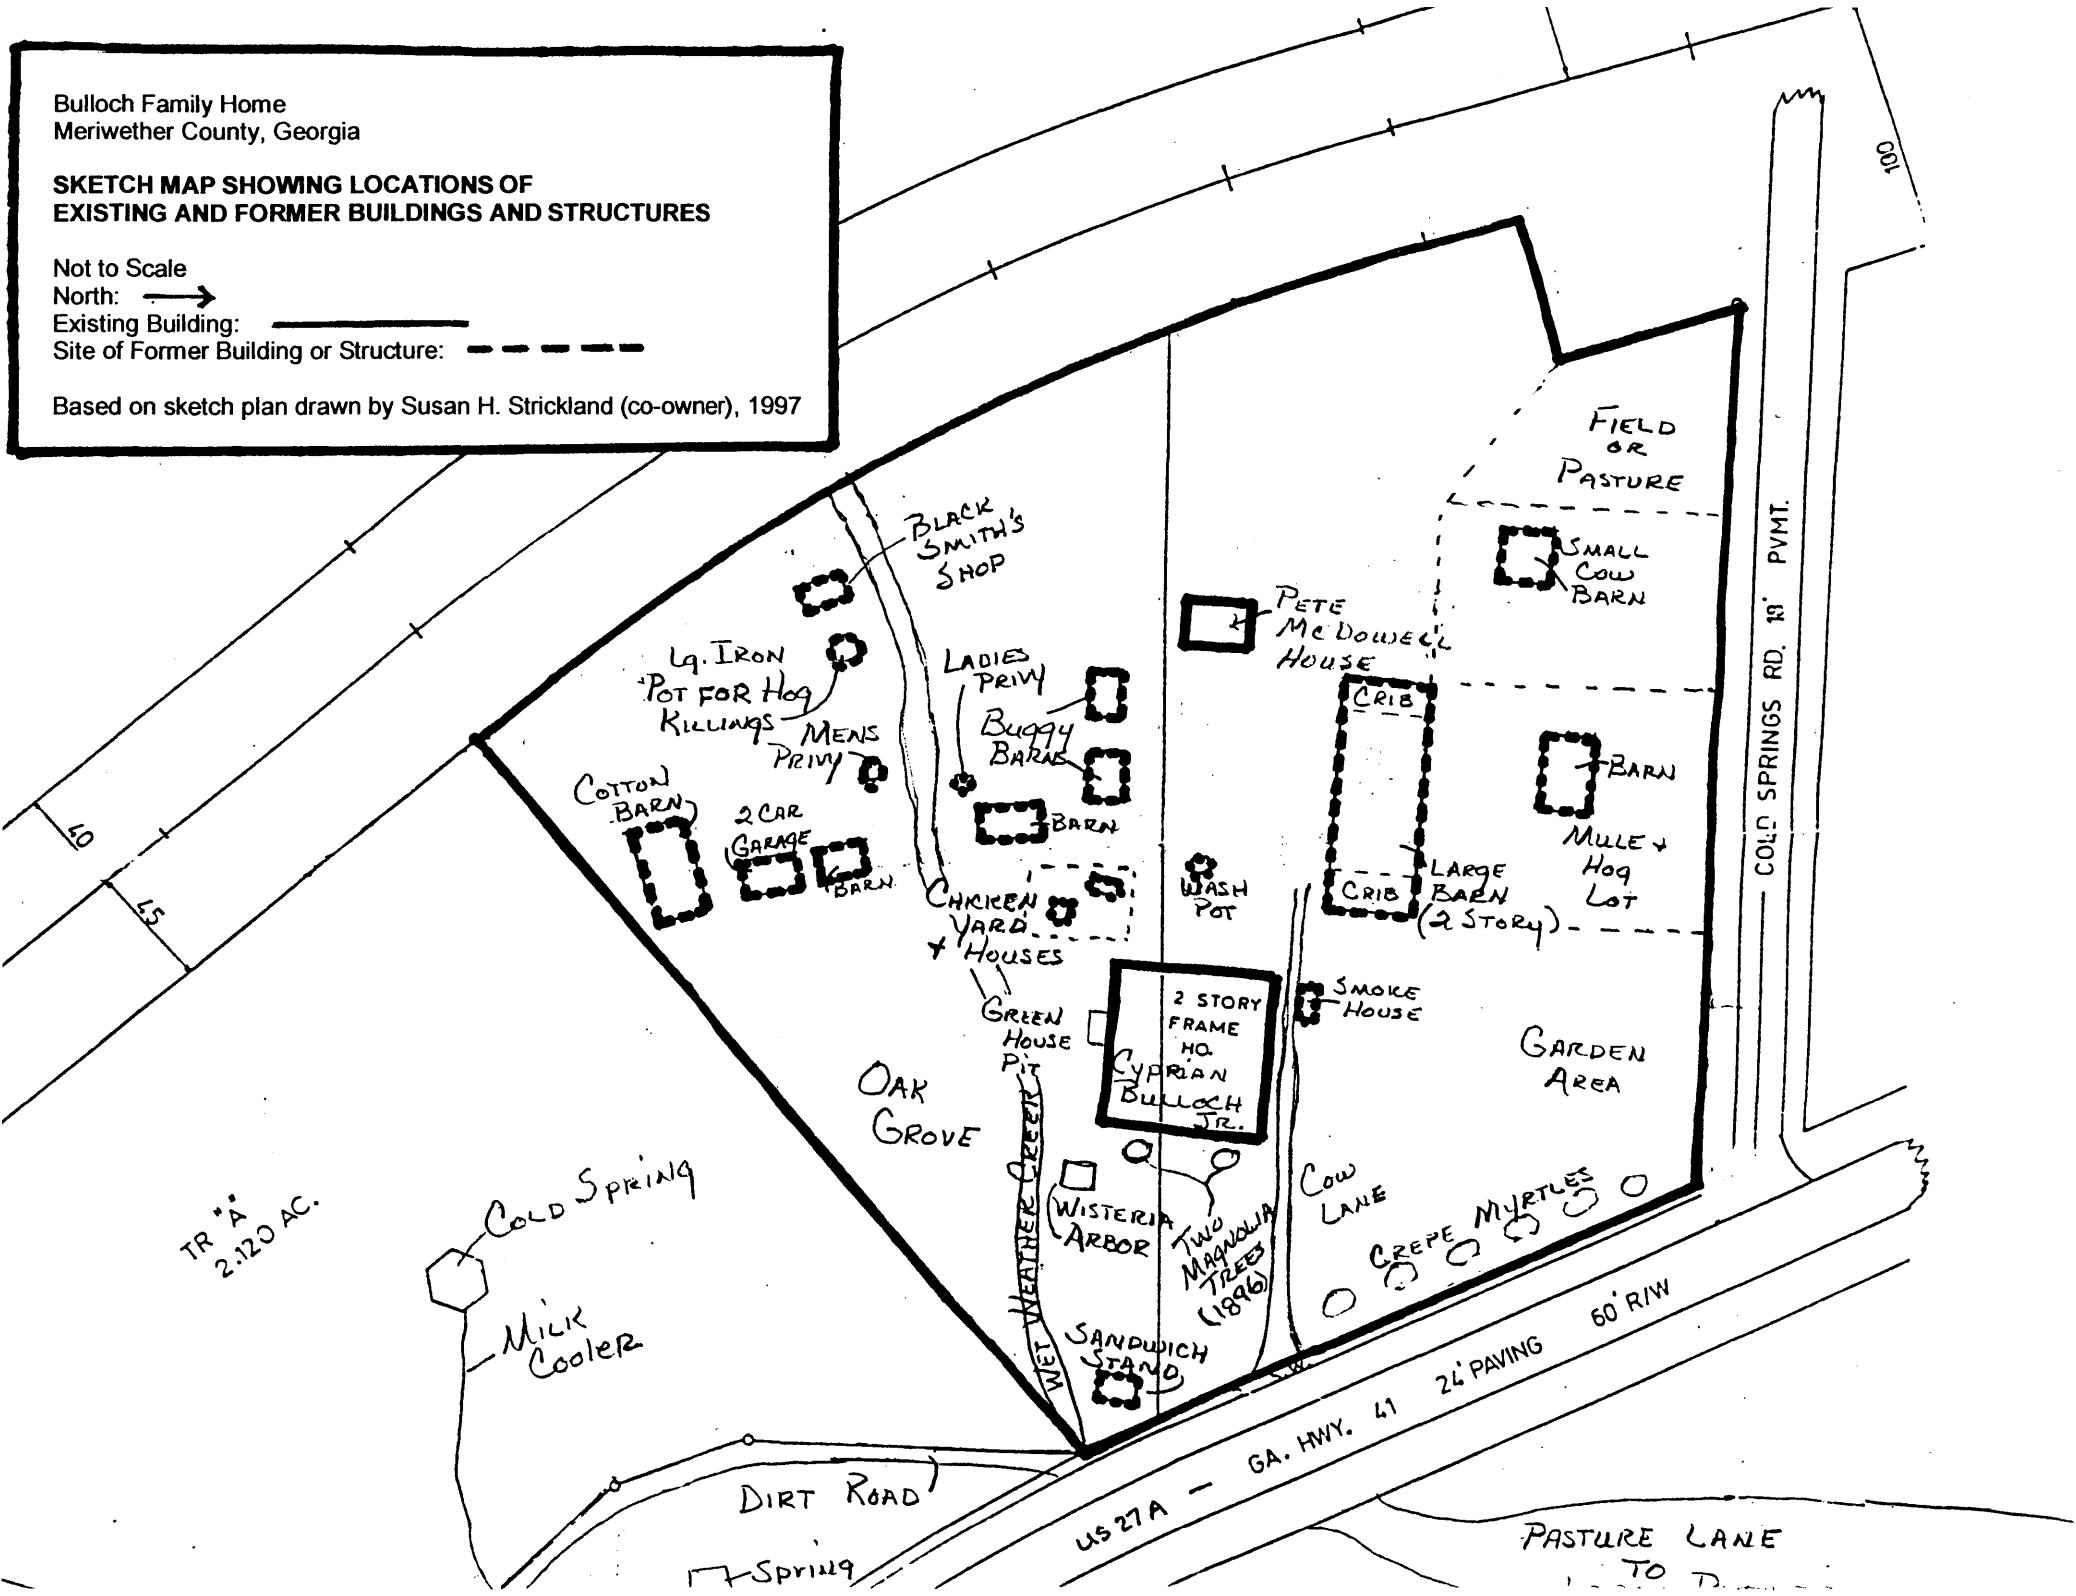 Bulloch Family Home
Meriwether County, Georgia
SKETCH MAP SHOWING LOCATIONS OF
EXISTING AND FORMER BUILDINGS AND STRUCTURES
Not to Scale
North:
Existing Building:
Site of Former Building or Structure:
Based on sketch plan drawn by Susan H. Strickland (co-owner), 1997
100
FIELD
OR
PASTURE
BLACK
SMITH'S
SHOP
SMALL
COW
BARN
PETE
McDOWELL
HOUSE
Lg. IRON
POT FOR HOG
KILLINGS
LADIES
PRIVY
BUGGY
BARNS
MENS
PRIVY
CRIB
BARN
COTTON
BARN
2 CAR
GARAGE
BARN
BARN
MULE +
HOG
LOT
CHICKEN
YARD
+ HOUSES
WASH
POT
CRIB
LARGE
BARN
(2 STORY)
COLD SPRINGS RD. 19' PVMT.
40
45
2 STORY
FRAME
HO.
CYPRIAN
BULLOCH
JR.
SMOKE
HOUSE
GREEN
HOUSE
PIT
GARDEN
AREA
OAK
GROVE
WET WEATHER CREEK
WISTERIA
ARBOR
TWO
MAGNOLIA
TREES
(1896)
COW
LANE
CREPE MYRTLES
COLD SPRING
TR "A"
2.120 AC.
MILK
COOLER
SANDWICH
STAND
DIRT ROAD
US 27A - GA. HWY. 41 24' PAVING 60' R/W
Spring
PASTURE LANE
TO